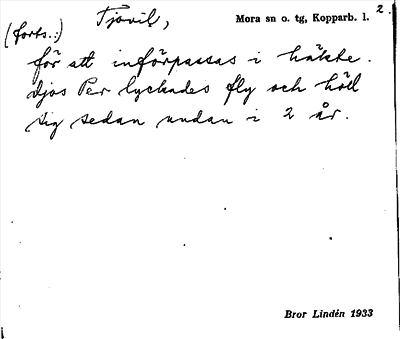 2.
(forts.:) Tjovil, Mora sn o. tg, Kopparb. l.
för att införpassas i häkte.
Djos Per lyckades fly och höll
sig sedan undan i 2 år.
Bror Lindén 1933